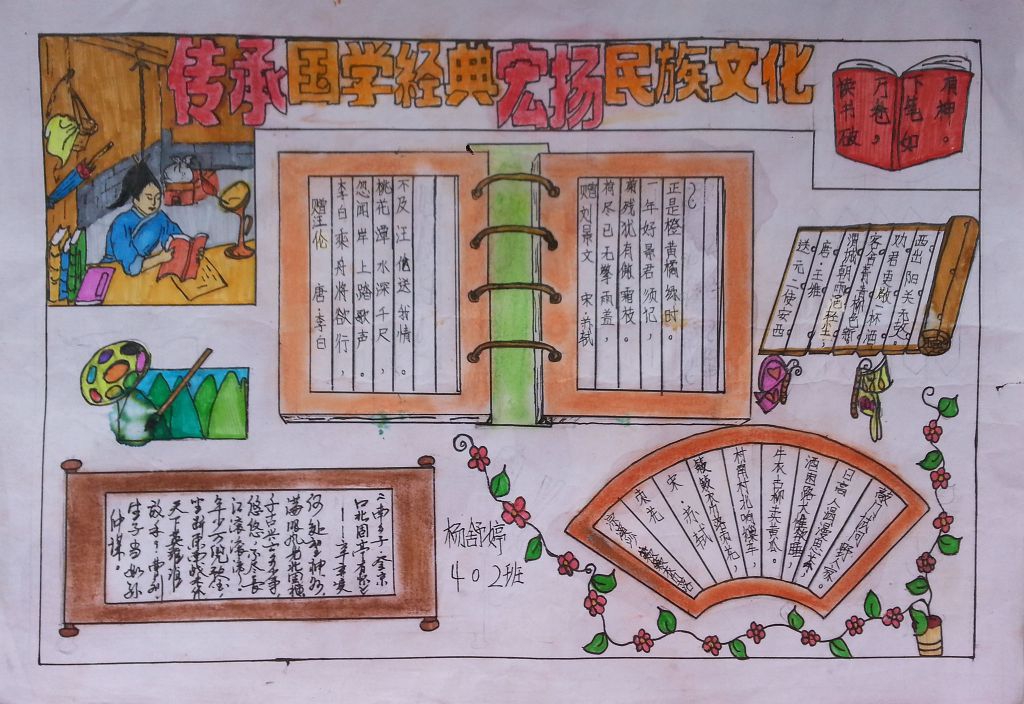 传承国学经典宏扬民族文化
读书破
万卷，
下笔如
有神。
赠汪伦 唐·李白
李白乘舟将欲行，
忽闻岸上踏歌声。
桃花潭水深千尺，
不及汪伦送我情。
赠刘景文 宋·苏轼
荷尽已无擎雨盖，
菊残犹有傲霜枝。
一年好景君须记，
正是橙黄橘绿时。
送元二使安西
唐·王维
渭城朝雨浥轻尘，
客舍青青柳色新
劝君更尽一杯酒
西出阳关无故
南乡子·登京
口北固亭有怀
——辛弃疾
何处望神州，
满眼风光北固楼
千古兴亡多少事
悠悠。不尽长
江滚滚流！
年少万兜鍪
坐断东南战未休
天下英雄谁
敌手？曹刘，
生子当如孙
仲谋。
杨舒婷
402班
宋·苏轼
簌簌衣巾落枣花，
村南村北响缲车，
牛衣古柳卖黄瓜。
酒困路长惟欲睡，
日高人渴漫思茶，
野人家。